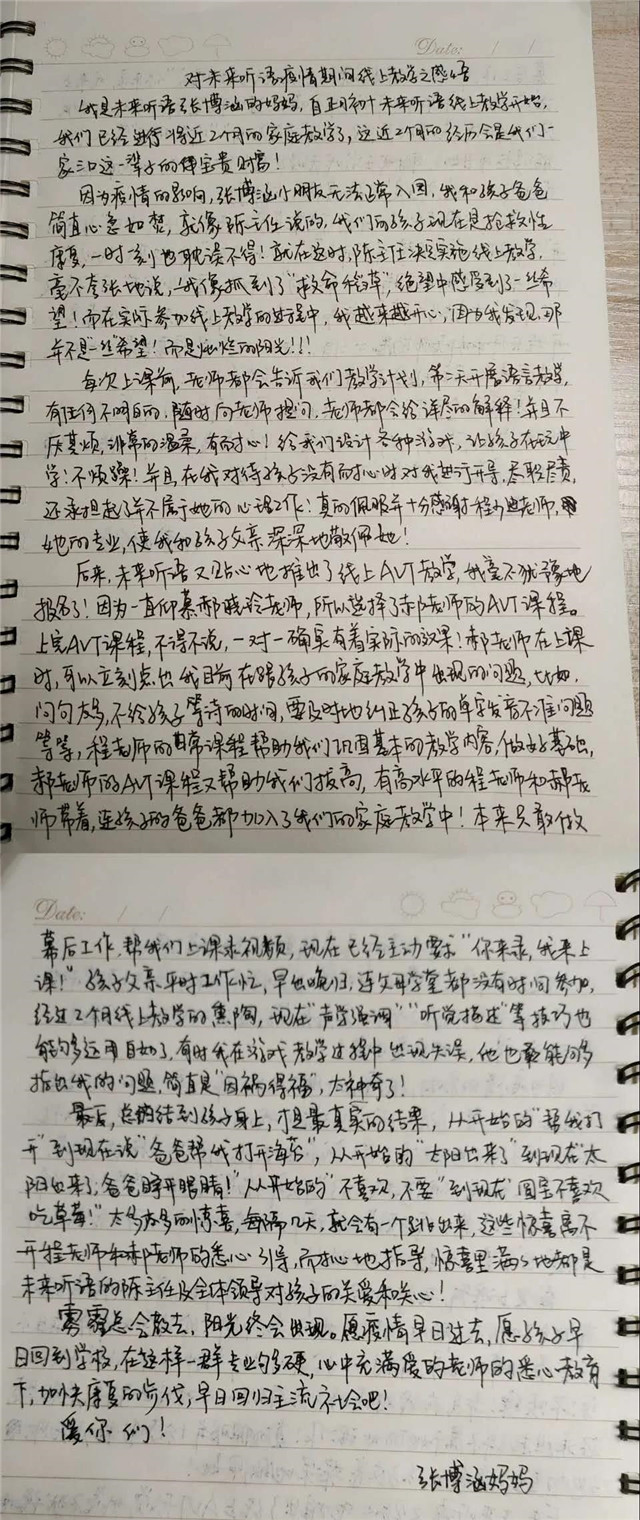 Date: / /
对未来听语疫情期间线上教学之感悟
我是未来听语张博涵的妈妈,自正月初十未来听语线上教学开始,
我们已经进行将近2个月的家庭教学了,这近2个月的经历会是我们一
家三口这一辈子的宝贵财富!
因为疫情的影响,张博涵小朋友无法正常入园,我和孩子爸爸
简直心急如焚,就像陈主任说的,我们的孩子现在是抢救性
康复,一时一刻也耽误不得!就在这时,陈主任决定实施线上教学,
毫不夸张地说,我像抓到了“救命稻草”,绝望中感受到了一丝希
望!而在实际参加线上教学的过程中,我越来越开心,因为我发现,那
并不是“一丝”希望!而是灿烂的阳光!!!
每次上课前,老师都会告诉我们教学计划,第二天开展语言教学,
有任何不明白的,随时向老师提问,老师都会给详尽的解释!并且不
厌其烦,非常的温柔,有耐心!给我们设计各种游戏,让孩子在玩中
学!不烦躁!并且,在我对待孩子没有耐心时对我进行开导,尽职尽责,
还承担起了并不属于她的心理工作!真的佩服并十分感谢程老师,
她的专业,使我和孩子父亲深深地敬佩她!
后来,未来听语又贴心地推出了线上AVT教学,我毫不犹豫地
报名了!因为一直仰慕郝晓玲老师,所以选择了郝老师的AVT课程。
上完AVT课程,不得不说,一对一确实有着实际的效果!郝老师在上课
时,可以立刻点出我目前在跟孩子的家庭教学中出现的问题,比如,
问句太多,不给孩子等待的时间,要及时地纠正孩子的单字发音不准问题
等等,程老师的日常课程帮助我们巩固基本的教学内容,做好基础,
郝老师的AVT课程又帮助我们拔高,有高水平的程老师和郝老
师带着,连孩子的爸爸都加入了我们的家庭教学中!本来只敢做
Date: / /
幕后工作,帮我们上课录视频,现在已经主动要求“你来录,我来上
课!”孩子父亲平时工作忙,早出晚归,连父母学堂都没有时间参加,
经过2个月线上教学的熏陶,现在“声学强调”“听觉描述”等技巧也
能够运用自如了,有时我在游戏教学过程中出现失误,他也能够
指出我的问题,简直是“因祸得福”,太神奇了!
最后,总结到孩子身上,才是最真实的结果,从开始的“帮我打
开”到现在说“爸爸帮我打开海苔”,从开始的“太阳出来了”到现在“太
阳出来了,爸爸睁开眼睛!”从开始的“不喜欢,不要”到现在“圆圆不喜欢
吃草莓!”太多太多的惊喜,每隔几天,就会有一个蹦出来,这些惊喜离不
开程老师和郝老师的悉心引导,耐心地指导,惊喜里满满地都是
未来听语的陈主任及全体领导对孩子的关爱和关心!
雾霾总会散去,阳光终会出现。愿疫情早日过去,愿孩子早
日回到学校,在这样一群专业够硬,心中充满爱的老师的悉心教育
下,加快康复的步伐,早日回归主流社会吧!
爱你们!
张博涵妈妈